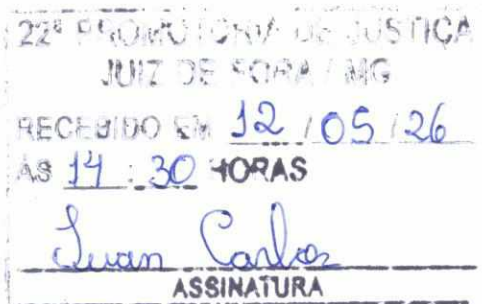 22ª PROMOTORIA DE JUSTIÇA
JUIZ DE FORA / MG
RECEBIDO EM 12 / 05 / 26
ÀS 14 : 30 HORAS
Luan Carlos
ASSINATURA